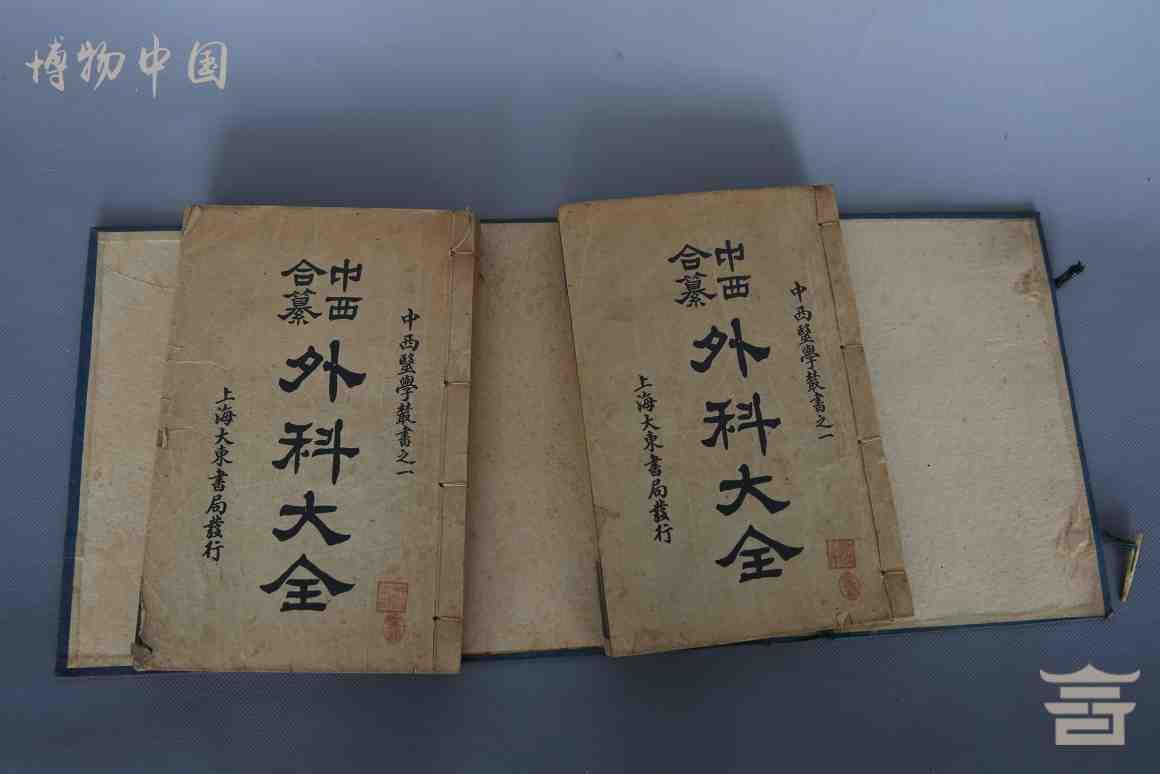 博物中国
中西醫學叢書之一
中西
合纂
外科大全
上海大東書局發行
中西醫學叢書之一
中西
合纂
外科大全
上海大東書局發行